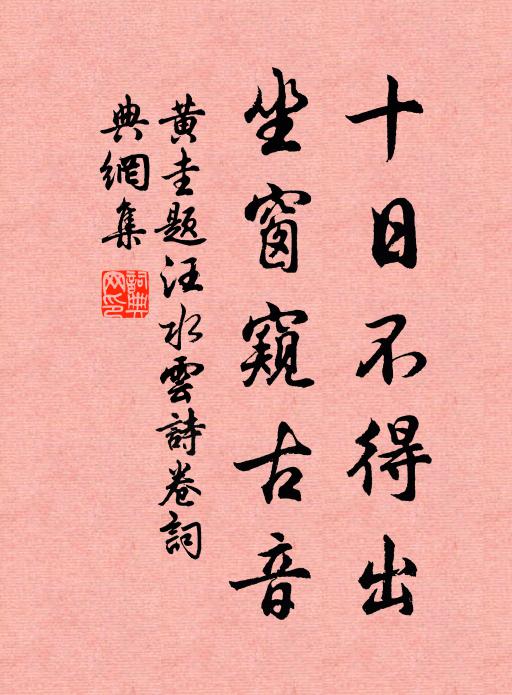 十日不得出
坐窗窺古音
黄圭題汪水雲詩卷詞
典網集
詞典網印